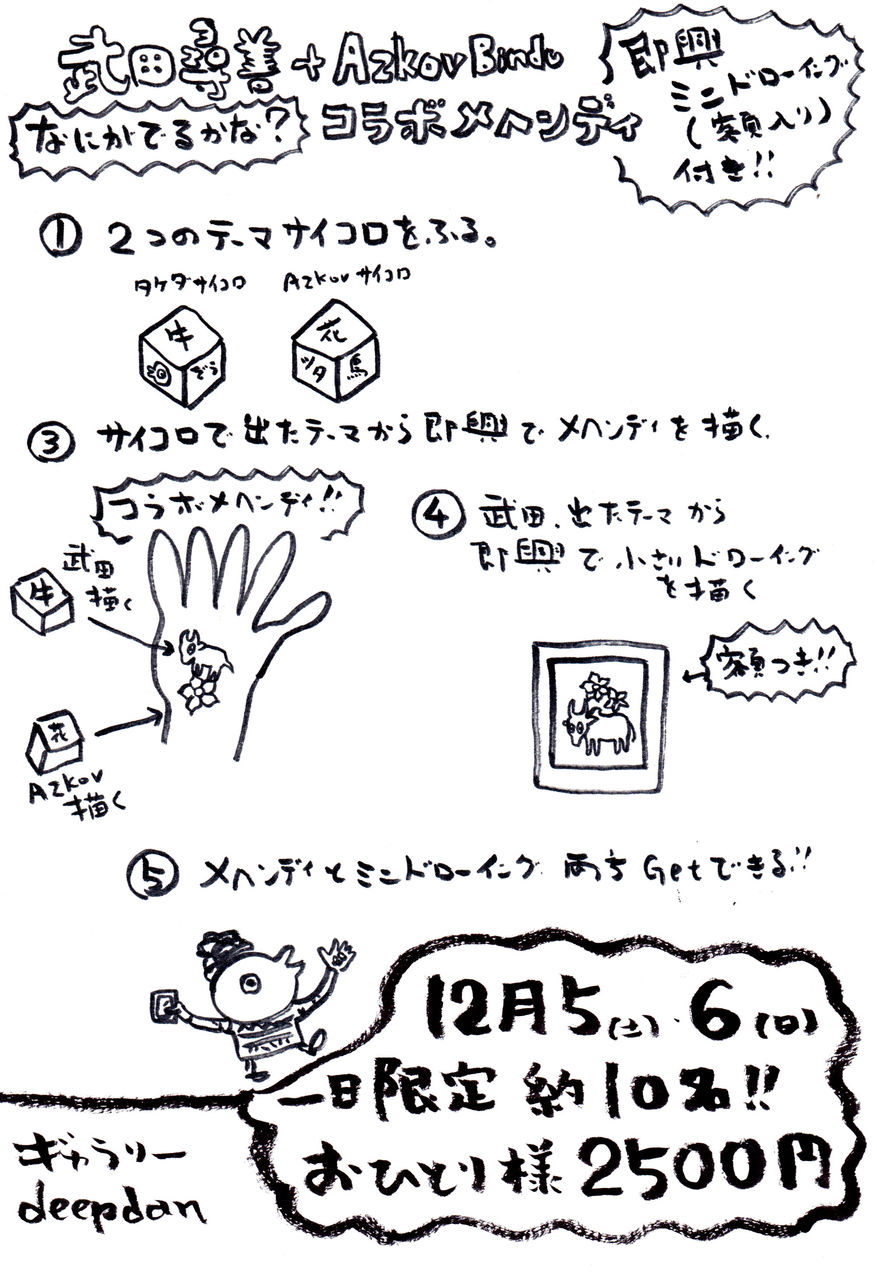 武田尋善+Azkov Bindu
なにがでるかな?
コラボメヘンディ
即興
ミニドローイング
(額入り)
付き!!
① 2つのテーマサイコロをふる。
タケダサイコロ
Azkovサイコロ
牛
ぞう
花
ツタ
馬
③ サイコロで出たテーマから即興でメヘンディを描く.
コラボメヘンディ!!
武田
描く
牛
花
Azkov
描く
④ 武田、出たテーマから
即興で小さいドローイング
を描く
額つき!!
⑤ メヘンディとミニドローイング 両方Getできる!!
12月5(土)・6(日)
一日限定 約10名!!
おひとり様2500円
ギャラリー
deepdan